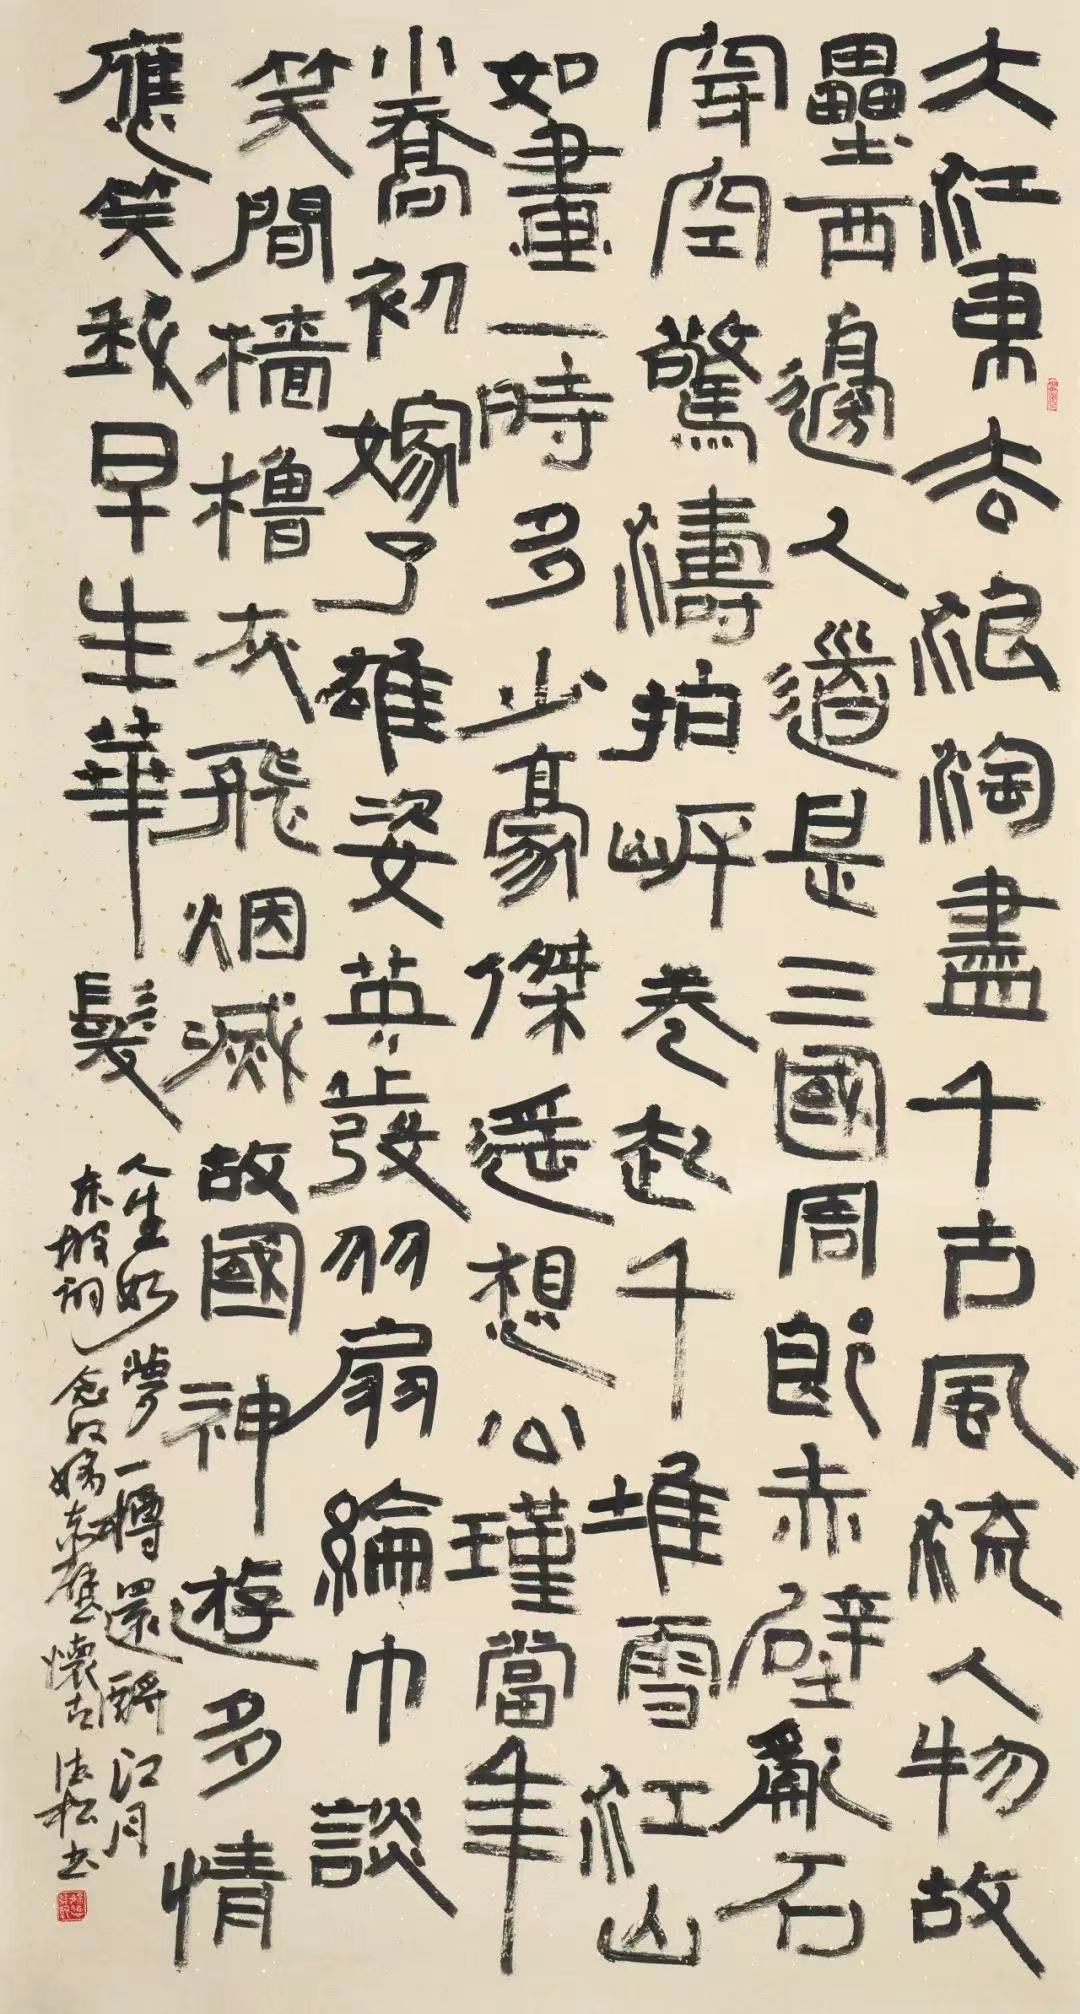 大江東去浪淘盡千古風流人物故
壘西邊人道是三國周郎赤壁亂石
穿空驚濤拍岸卷起千堆雪江山
如畫一時多少豪傑遥想公瑾當年
小喬初嫁了雄姿英發羽扇綸巾談
笑間檣櫓灰飛烟滅故國神遊多情
應笑我早生華髮
人生如夢一樽還酹江月
東坡詞念奴嬌赤壁懷古 松書